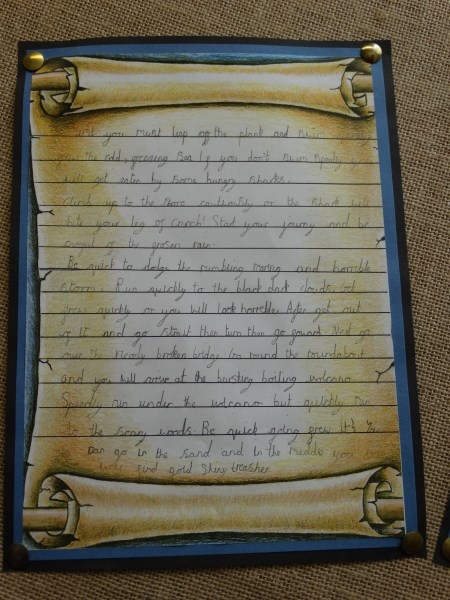 First you must leap off the plank and swim
the odd, greneing sea If you don't swim speedy you
will get eaten by some hungry sharks.
Climb up to the shore coutiously or the shark will
bite your leg of Crnch! Start your jouney and be
of the grosen rain.
Be quick to dodge the rumbling roaring and horrible
storm. Run quickly to the black dark clouds. Get
quickly or you will look horrible. After get out
of it and go strait then turn then go round. Next go
over the broken bridge round the roundabout
and you will arrive at the bursting boiling volcano.
Speedly run under the volcano but quickly run
to the scary woods. Be quick going It's
go in the sand and in the middle you
find gold shiny treasher